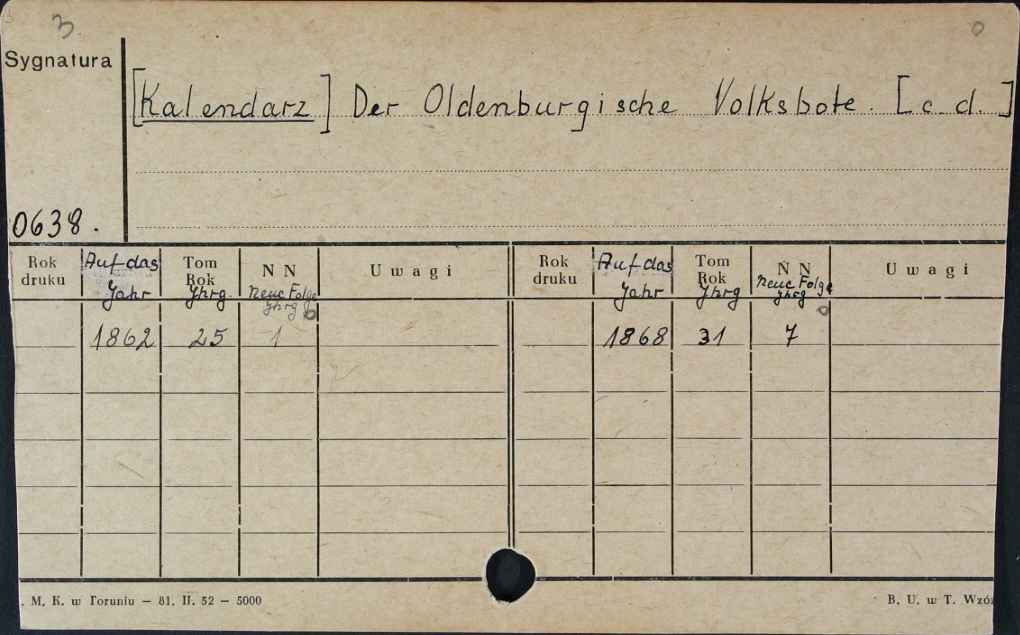 3
Sygnatura
[Kalendarz] Der Oldenburgische Volksbote. [c.d.]
0638.
Rok druku Auf das Jahr Tom Rok Jhrg. N N Neue Folge Jhrg Uwagi Rok druku Auf das Jahr Tom Rok Jhrg N N Neue Folge Jhrg Uwagi
1862 25 1 1868 31 7
M. K. w Toruniu – 81. II. 52 – 5000 B. U. w T. Wzór